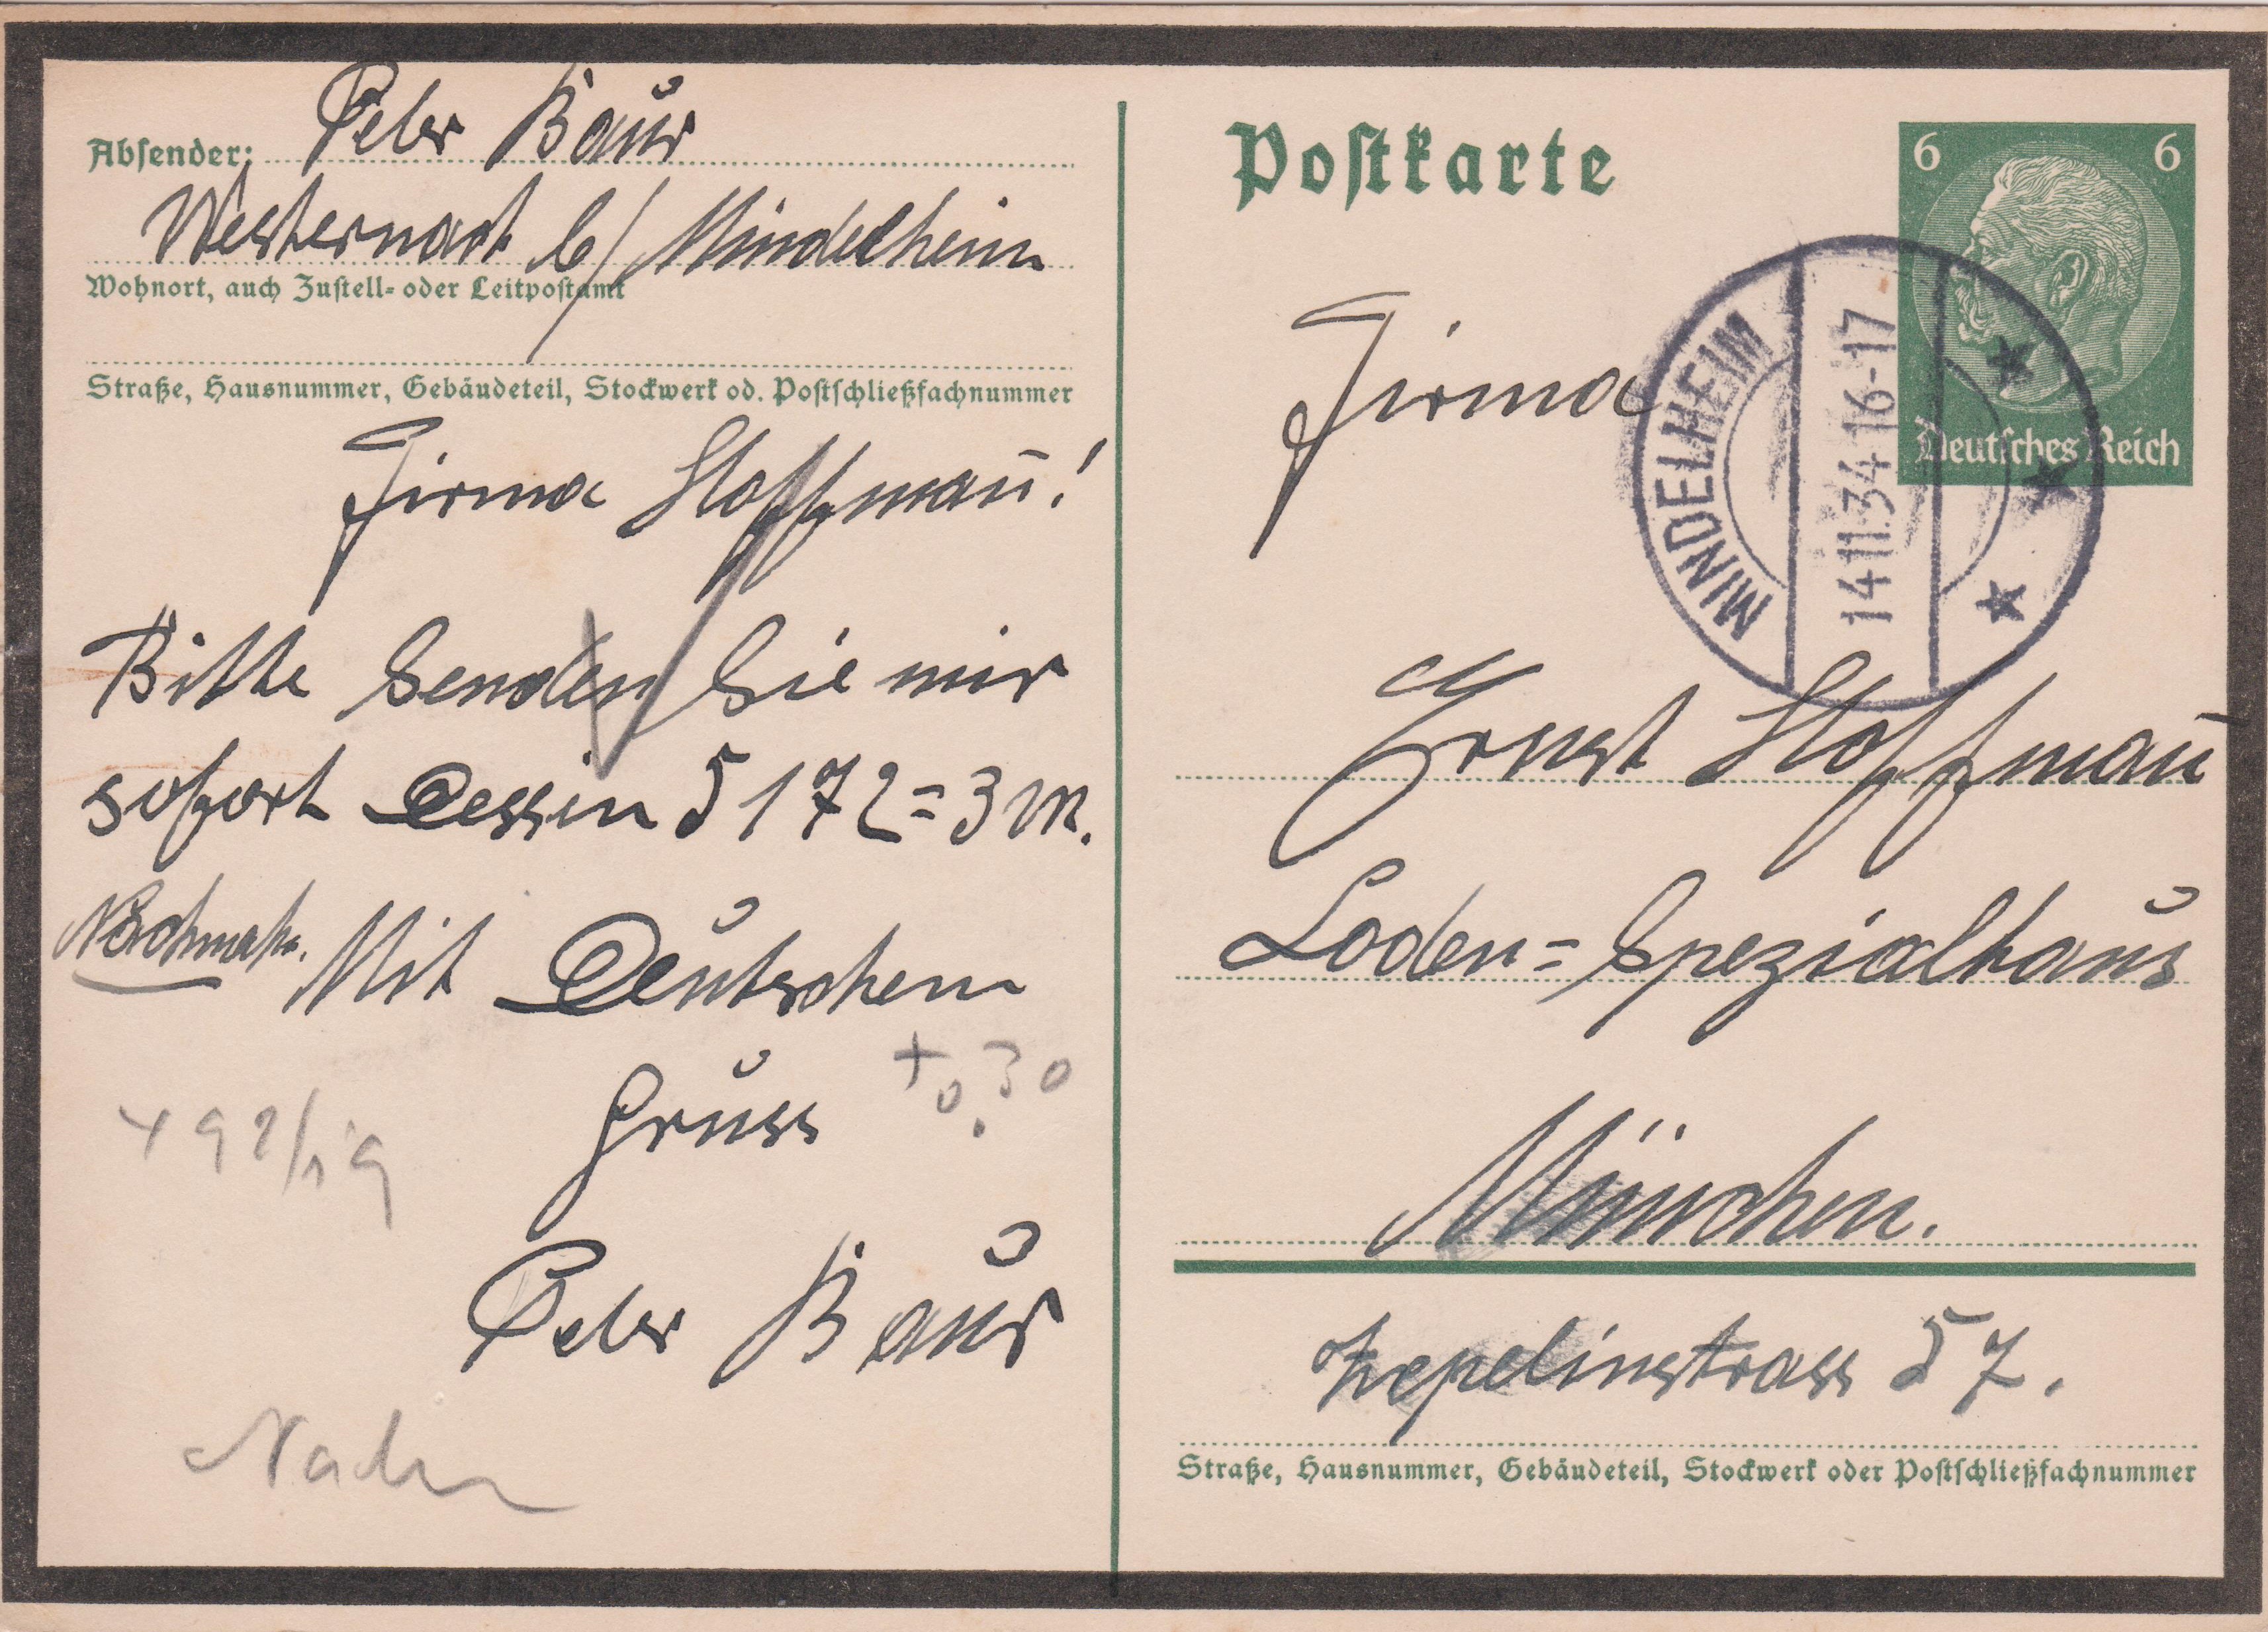 Absender: Peter Baur
Westernach b/ Mindelheim
Wohnort, auch Zustell- oder Leitpostamt
Straße, Hausnummer, Gebäudeteil, Stockwerk od. Postschließfachnummer
Firma Hoffmañ!
Bitte Senden Sie mir
sofort Dessin 5172 = 3 m.
Nachnahm.
Mit Deutschem
Gruss
+ 0.30
Peter Baur
Nachn
Postkarte
6 6
Deutsches Reich
MINDELHEIM
14.11.34 16-17
Firma
Ernst Hoffmañ
Loden = Spezialhaus
München.
Zepelinstrass 57.
Straße, Hausnummer, Gebäudeteil, Stockwerk oder Postschließfachnummer